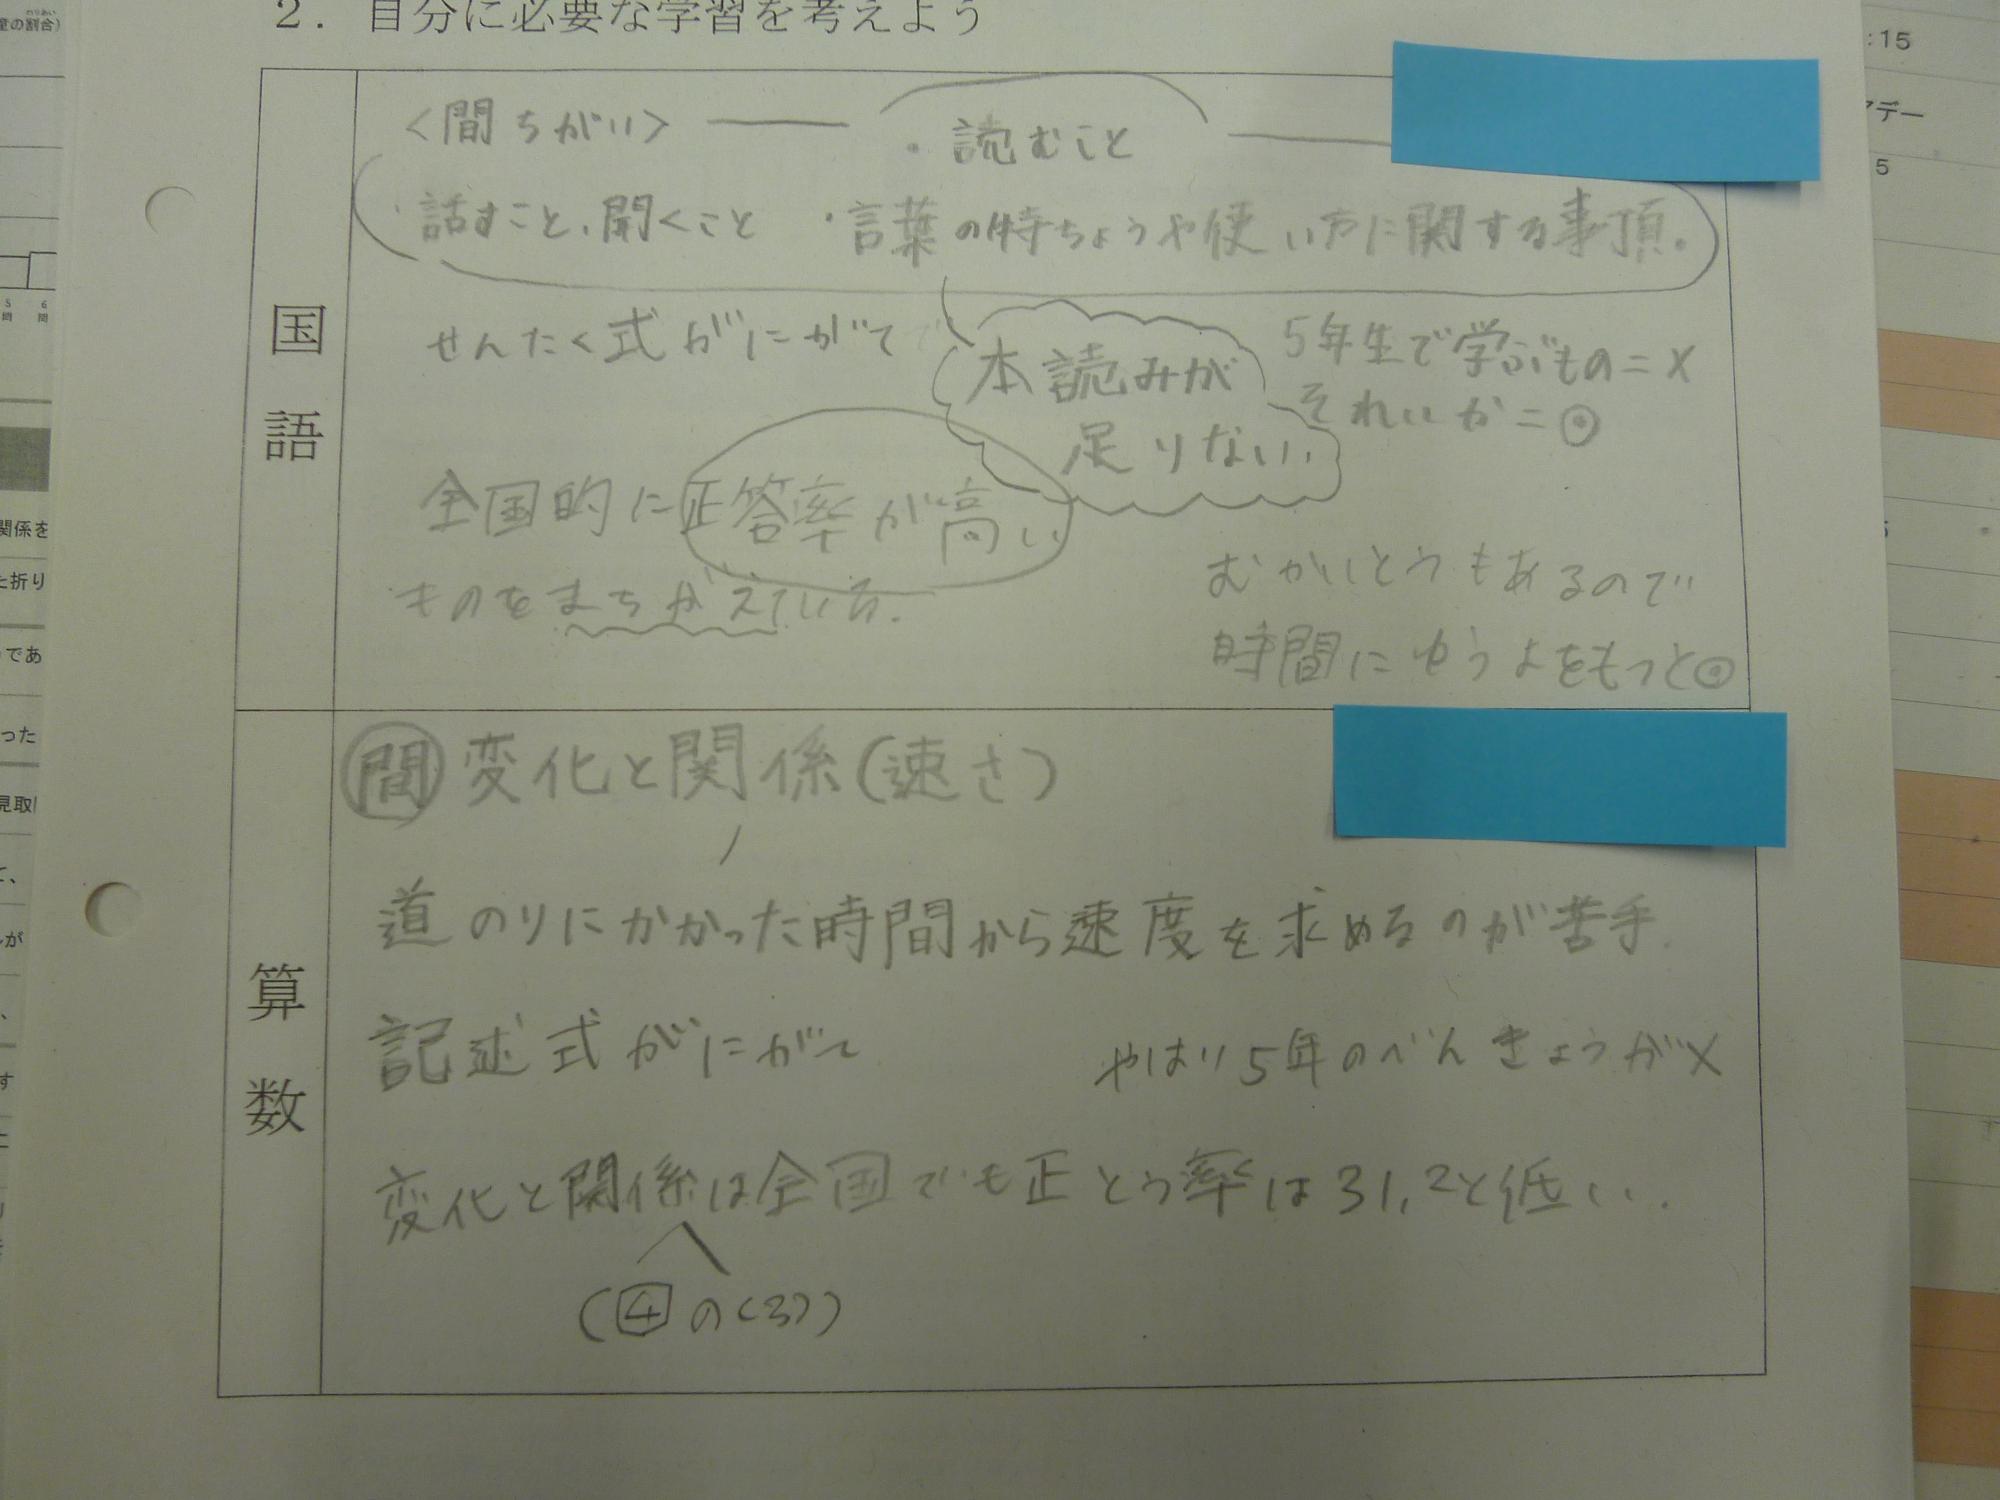 2. 自分に必要な学習を考えよう
国語
<間ちがい>
・読むこと
・話すこと、聞くこと ・言葉の特ちょうや使い方に関する事項。
せんたく式がにがて
本読みが
足りない
5年生で学ぶもの=×
それいか=◎
全国的に正答率が高い
ものをまちがえている.
むかいとうもあるので
時間にゆうよをもっと◎
算数
間 変化と関係(速さ)
道のりにかかった時間から速度を求めるのが苦手.
記述式がにがて
やはり5年のべんきょうが×
変化と関係は全国でも正とう率は31,2と低い.
(4の(3))
童の割合)
5問
6問
関係を
た折り
であ
った
見取
が
す
:15
アデー
5